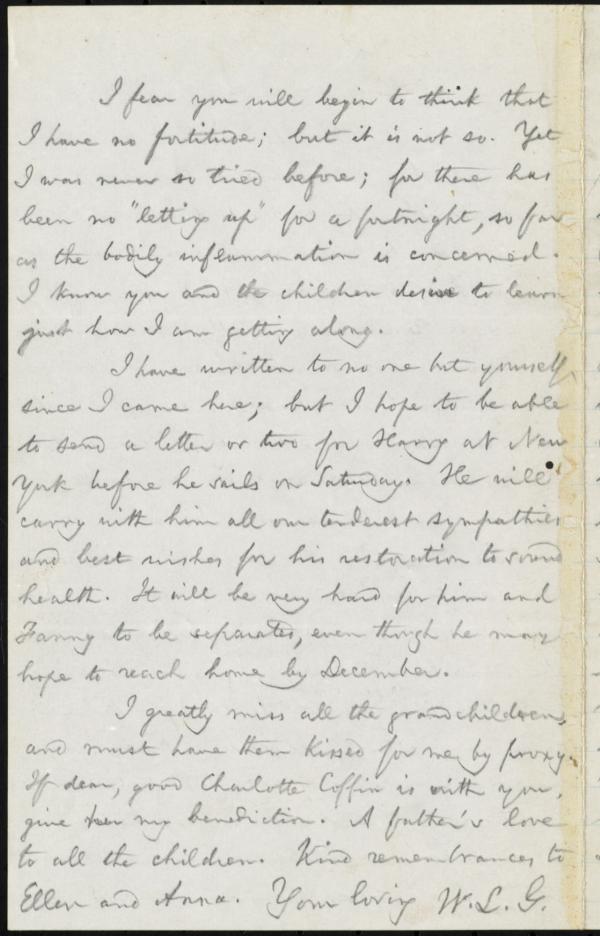 I fear you will begin to think that
I have no fortitude; but it is not so. Yet
I was never so tried before; for there has
been no "letting up" for a fortnight, so far
as the bodily inflammation is concerned.
I know you and the children desire to learn
just how I am getting along.
I have written to no one but yourself,
since I came here; but I hope to be able
to send a letter or two for Harry at New
York before he sails on Saturday. He will
carry with him all our tenderest sympathies
and best wishes for his restoration to sound
health. It will be very hard for him and
Fanny to be separated, even though he may
hope to reach home by December.
I greatly miss all the grandchildren,
and must have them kissed for me by proxy.
If dear, good Charlotte Coffin is with you,
give her my benediction. A father's love
to all the children. Kind remembrances to
Ellen and Anna. Your loving W. L. G.